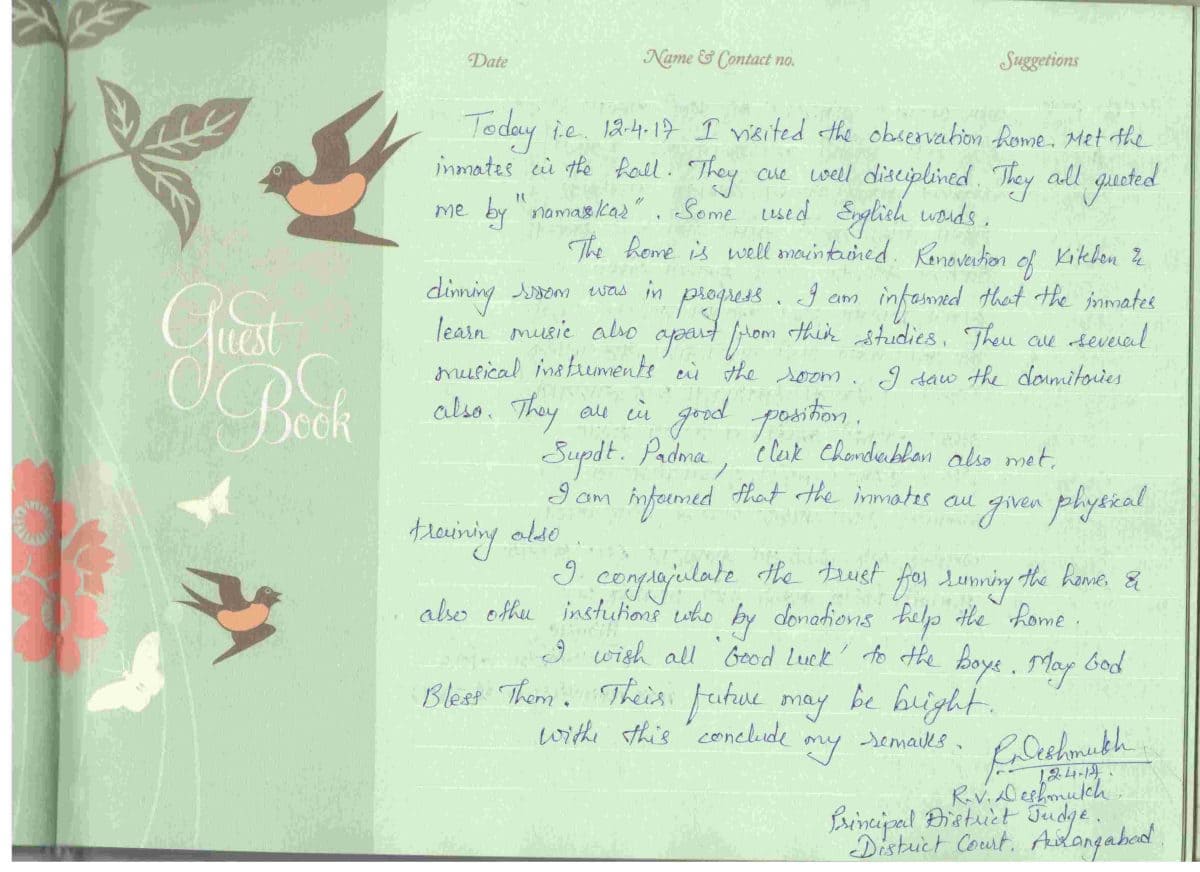 Date Name & Contact no. Suggetions
Guest
Book
Today i.e. 12.4.17 I visited the observation home. Met the
inmates in the hall. They are well disciplined They all greeted
me by "namaskar". Some used English words.
The home is well maintained. Renovation of Kitchen &
dinning room was in progress. I am informed that the inmates
learn music also apart from their studies. There are several
musical instruments in the room. I saw the dormitories
also. They are in good position.
Supdt. Padma, clerk Chandrabhan also met.
I am informed that the inmates are given physical
training also.
I congrajulate the trust for running the home, &
also other instutions who by donations help the home.
I wish all 'Good Luck' to the boys. May God
Bless Them. Their future may be bright.
withe this conclude my remarks.
R.V.Deshmukh
12.4.17.
R.V. Deshmukh.
Principal District Judge.
District Court. Aurangabad